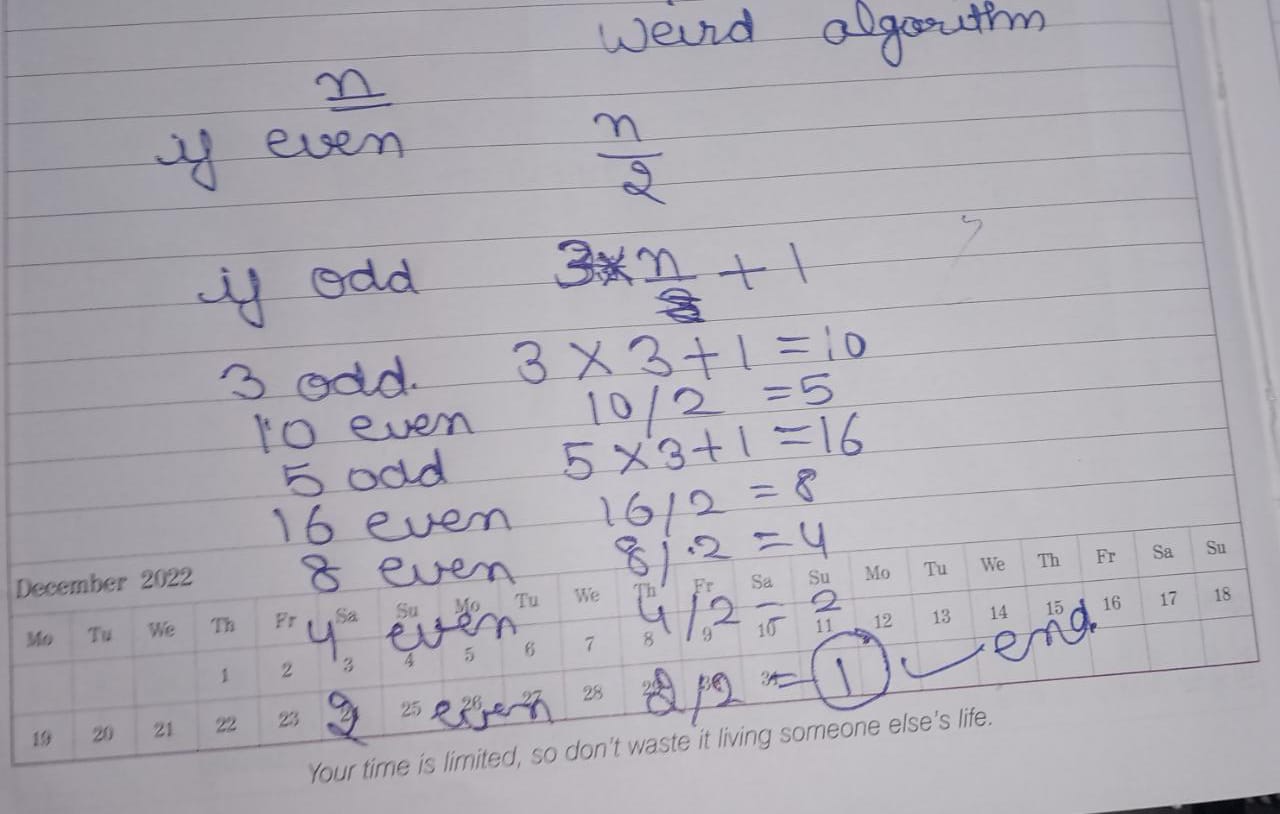 Weird algorithm
n
if even n/2
if odd 3×n + 1
3 odd. 3 × 3 + 1 = 10
10 even 10/2 = 5
5 odd 5 × 3 + 1 = 16
16 even 16/2 = 8
8 even 8/2 = 4
4 even 4/2 = 2
2 even 2/2 = 1 end
December 2022
Mo Tu We Th Fr Sa Su Mo Tu We Th Fr Sa Su Mo Tu We Th Fr Sa Su
1 2 3 4 5 6 7 8 9 10 11 12 13 14 15 16 17 18
19 20 21 22 23 25 26 27 28
Your time is limited, so don't waste it living someone else's life.